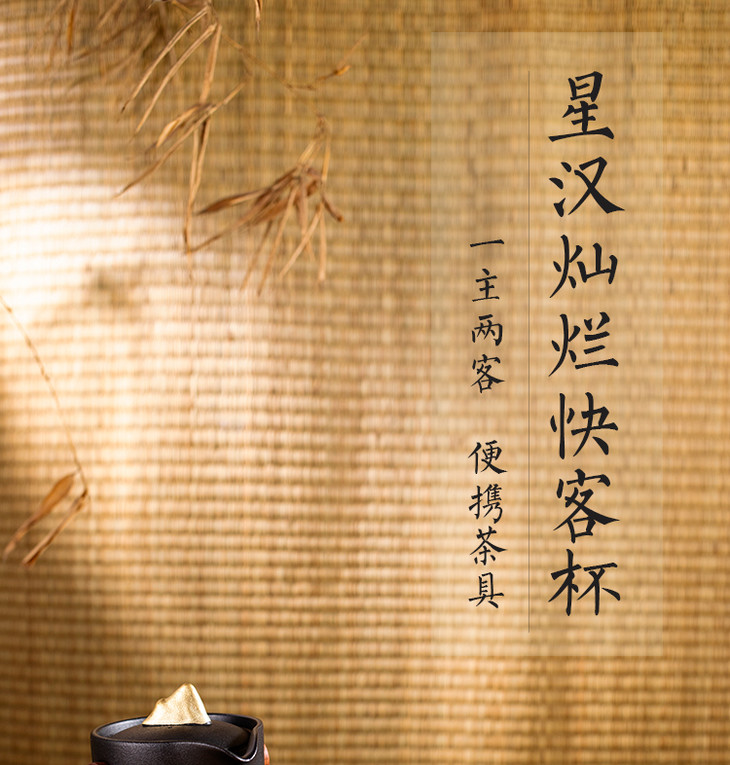 星汉灿烂快客杯
一主两客 便携茶具